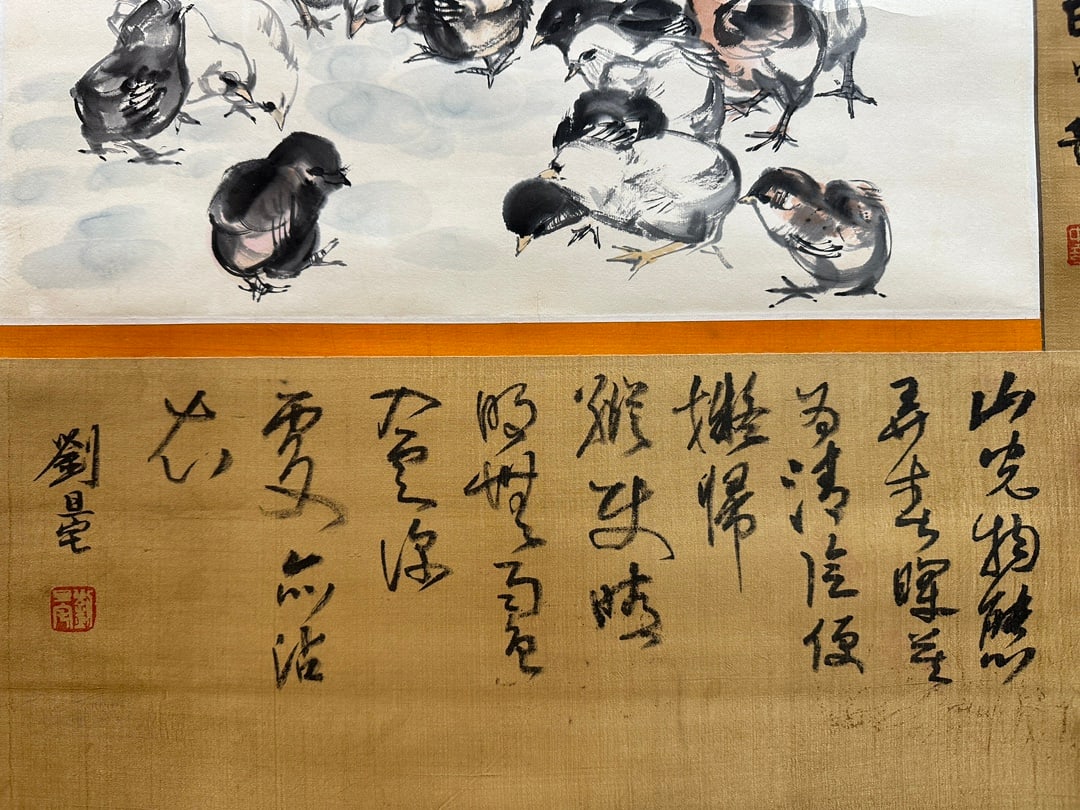 山光物態
弄春暉莫
為清陰便
擬歸
縱使晴
明無雨色
入雲深
處亦沾
衣
劉旦宅